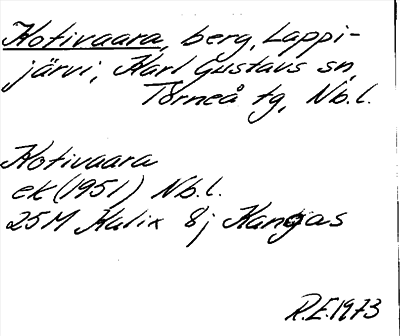 Kotivaara, berg, Lappi-
järvi, Karl Gustavs sn,
Torneå tg, Nb.l.
Kotivaara
ek (1951) Nb.l.
25M Kalix 8j Kangas
R.E.1973